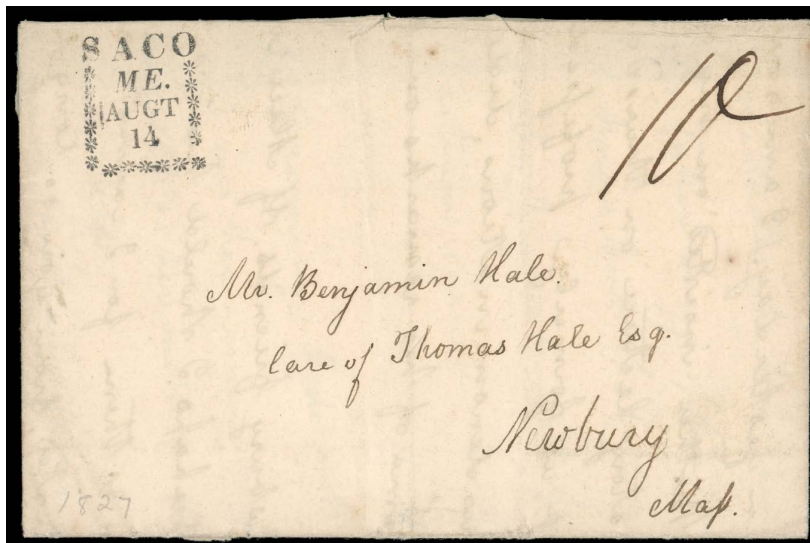 SACO
ME.
AUGT
14
10
Mr. Benjamin Hale.
Care of Thomas Hale Esq.
Newbury
Mass.
1827